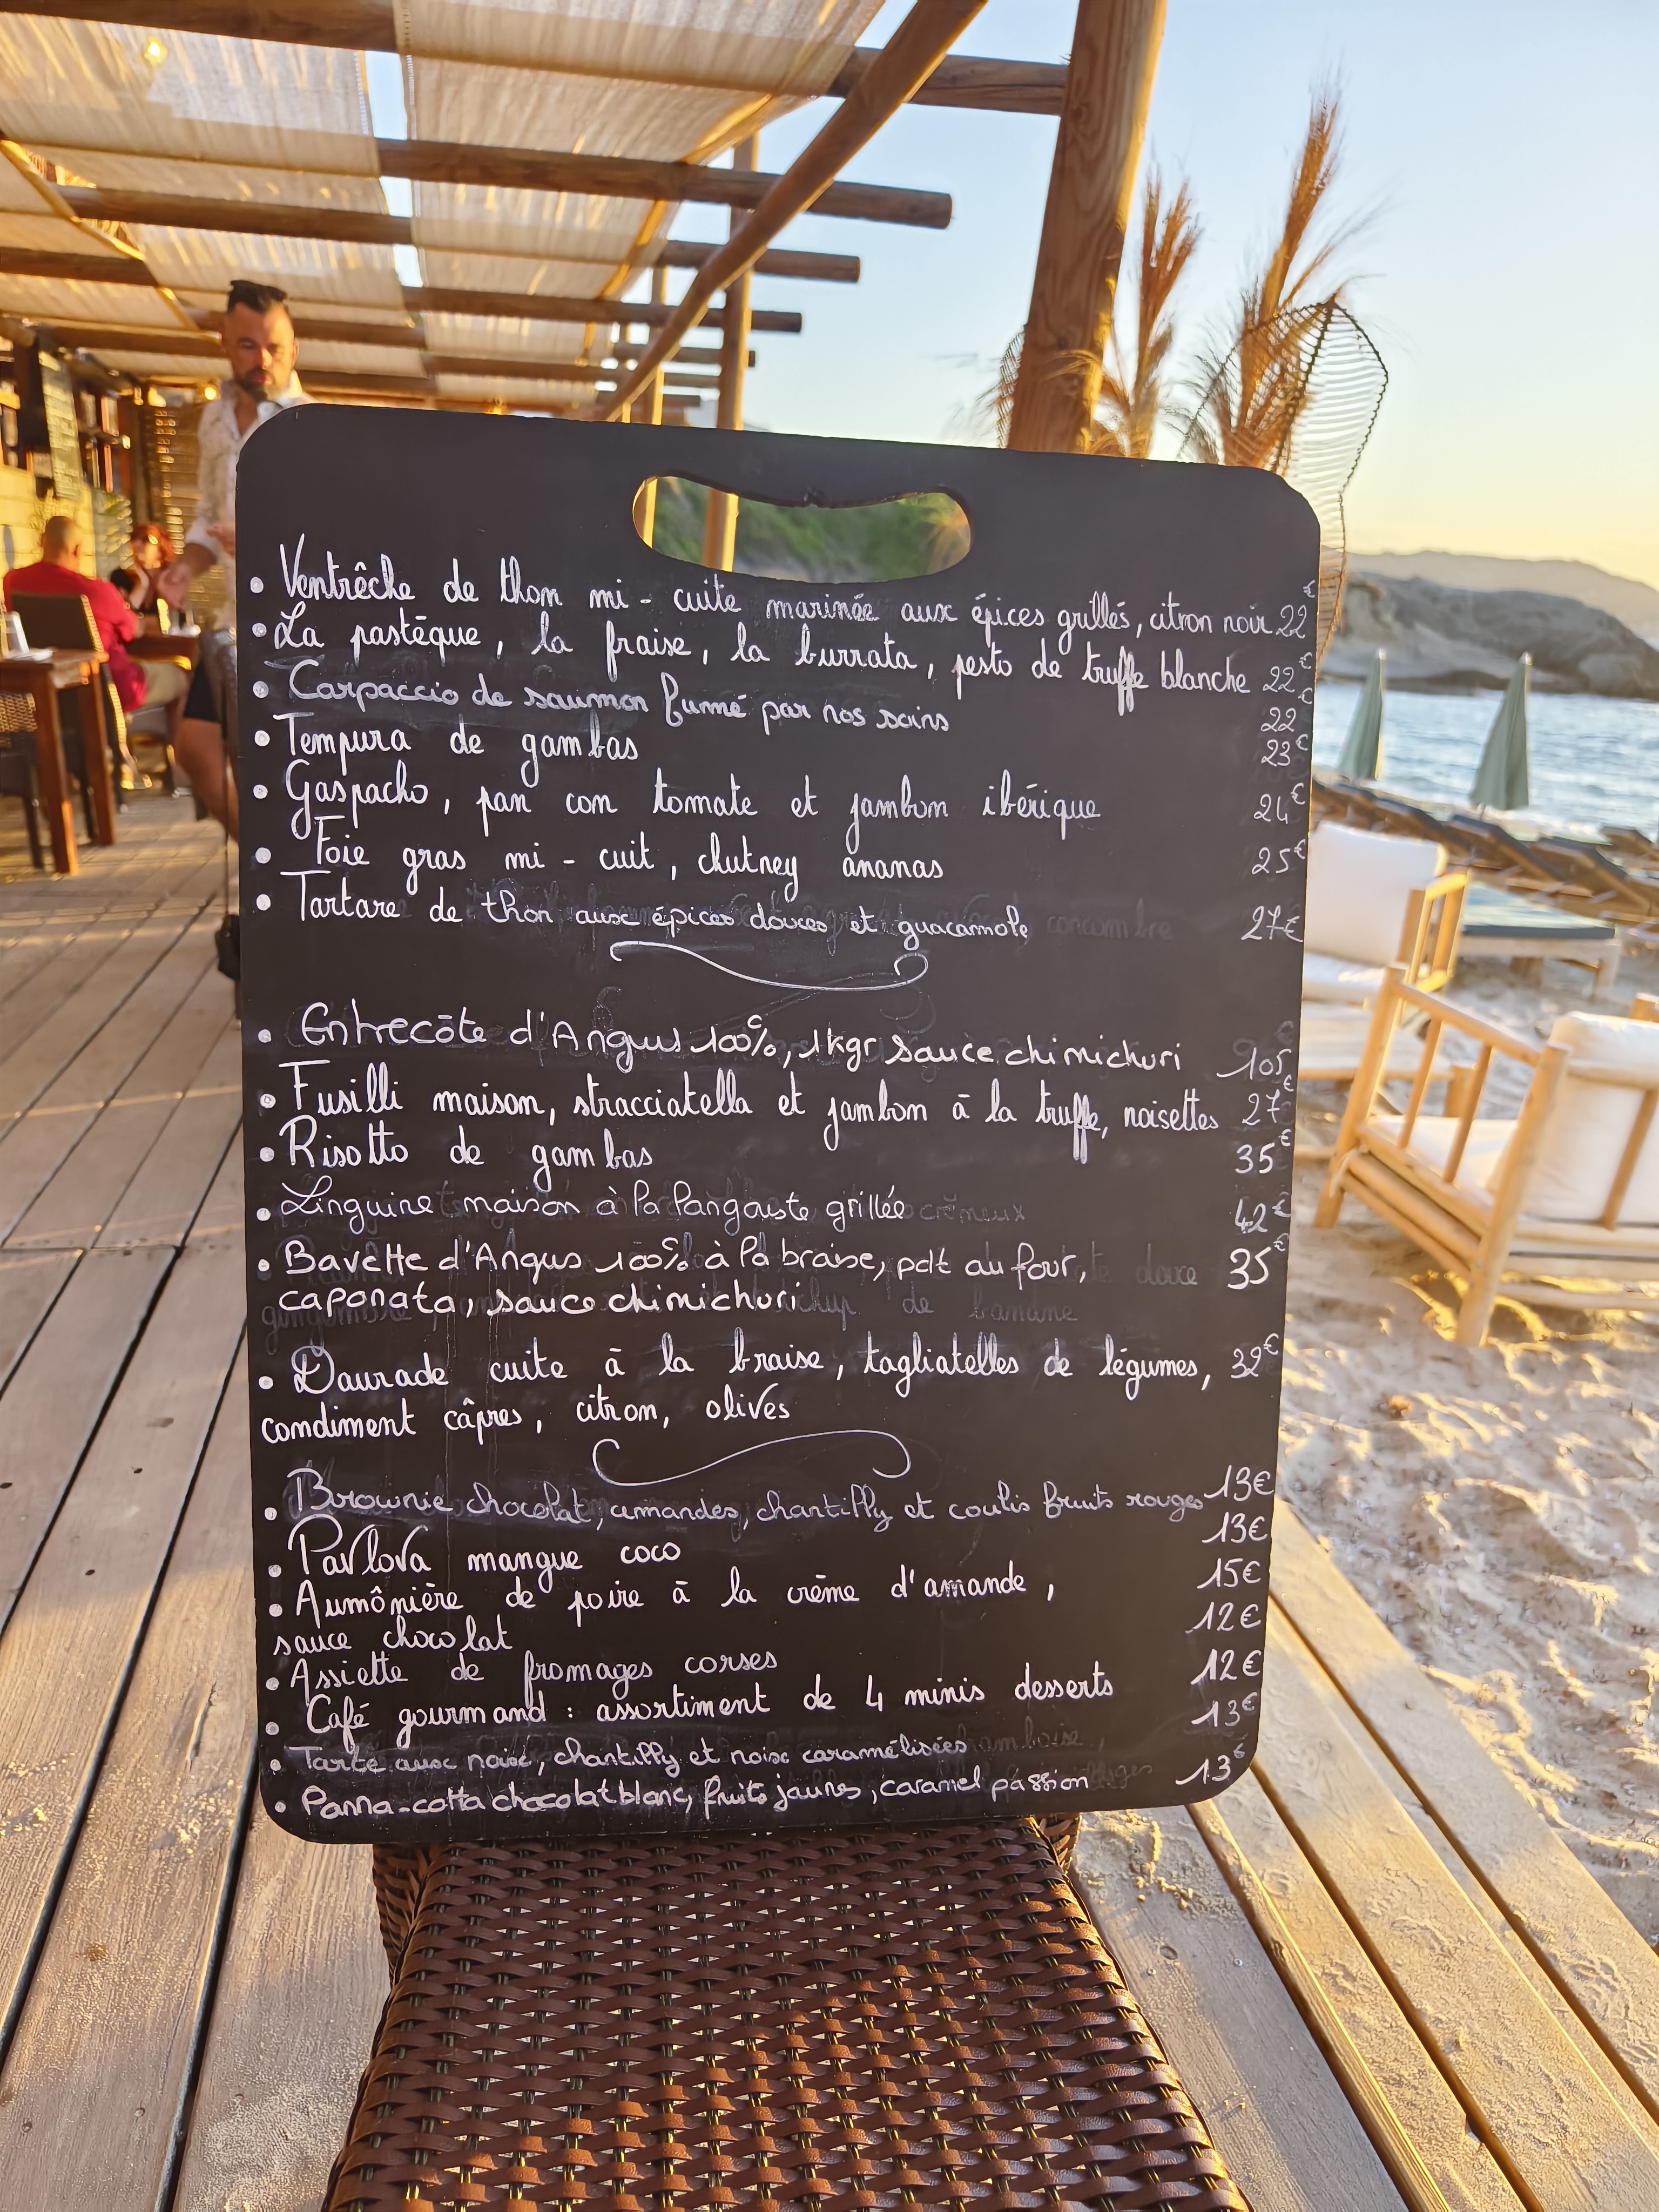 • Ventrêche de thon mi-cuite marinée aux épices grillés, citron noir 22€
• La pastèque, la fraise, la burrata, pesto de truffe blanche 22€
• Carpaccio de saumon fumé par nos soins 22€
• Tempura de gambas 23€
• Gaspacho, pan con tomate et jambon ibérique 24€
• Foie gras mi-cuit, chutney ananas 25€
• Tartare de thon aux épices douces et guacamole 27€
• Entrecôte d'Angus 100%, 1kgr sauce chimichuri 105€
• Fusilli maison, stracciatella et jambon à la truffe, noisettes 27€
• Risotto de gambas 35€
• Linguine maison à la langouste grillée 42€
• Bavette d'Angus 100% à la braise, pdt au four, 35€
caponata, sauce chimichuri
• Daurade cuite à la braise, tagliatelles de légumes, 32€
condiment câpres, citron, olives
• Brownie chocolat, amandes, chantilly et coulis fruits rouges 13€
• Pavlova mangue coco 13€
• Aumônière de poire à la crème d'amande, 15€
sauce chocolat
• Assiette de fromages corses 12€
• Café gourmand : assortiment de 4 minis desserts 12€
• Tarte aux noix, chantilly et noix caramélisées 13€
• Panna-cotta chocolat blanc, fruits jaunes, caramel passion 13€